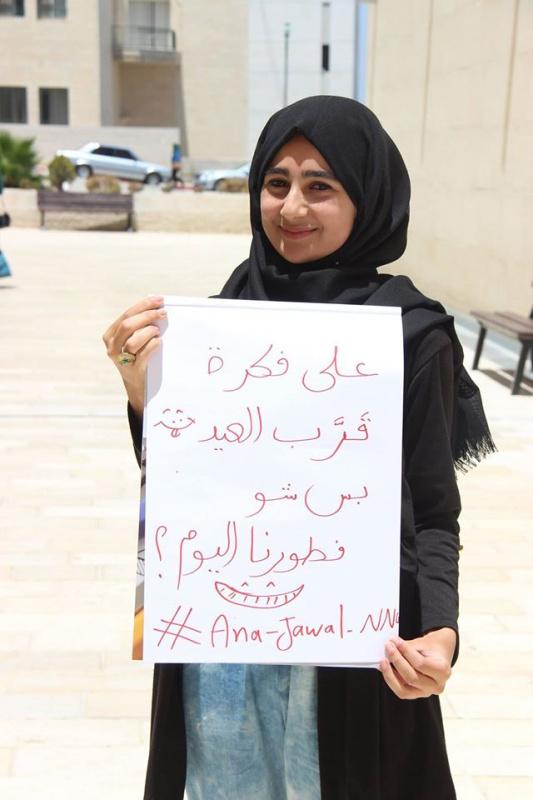 على فكرة
قَرَّب العيد
بس شو
فطورنا اليوم؟
# Ana-Jawal-NNU